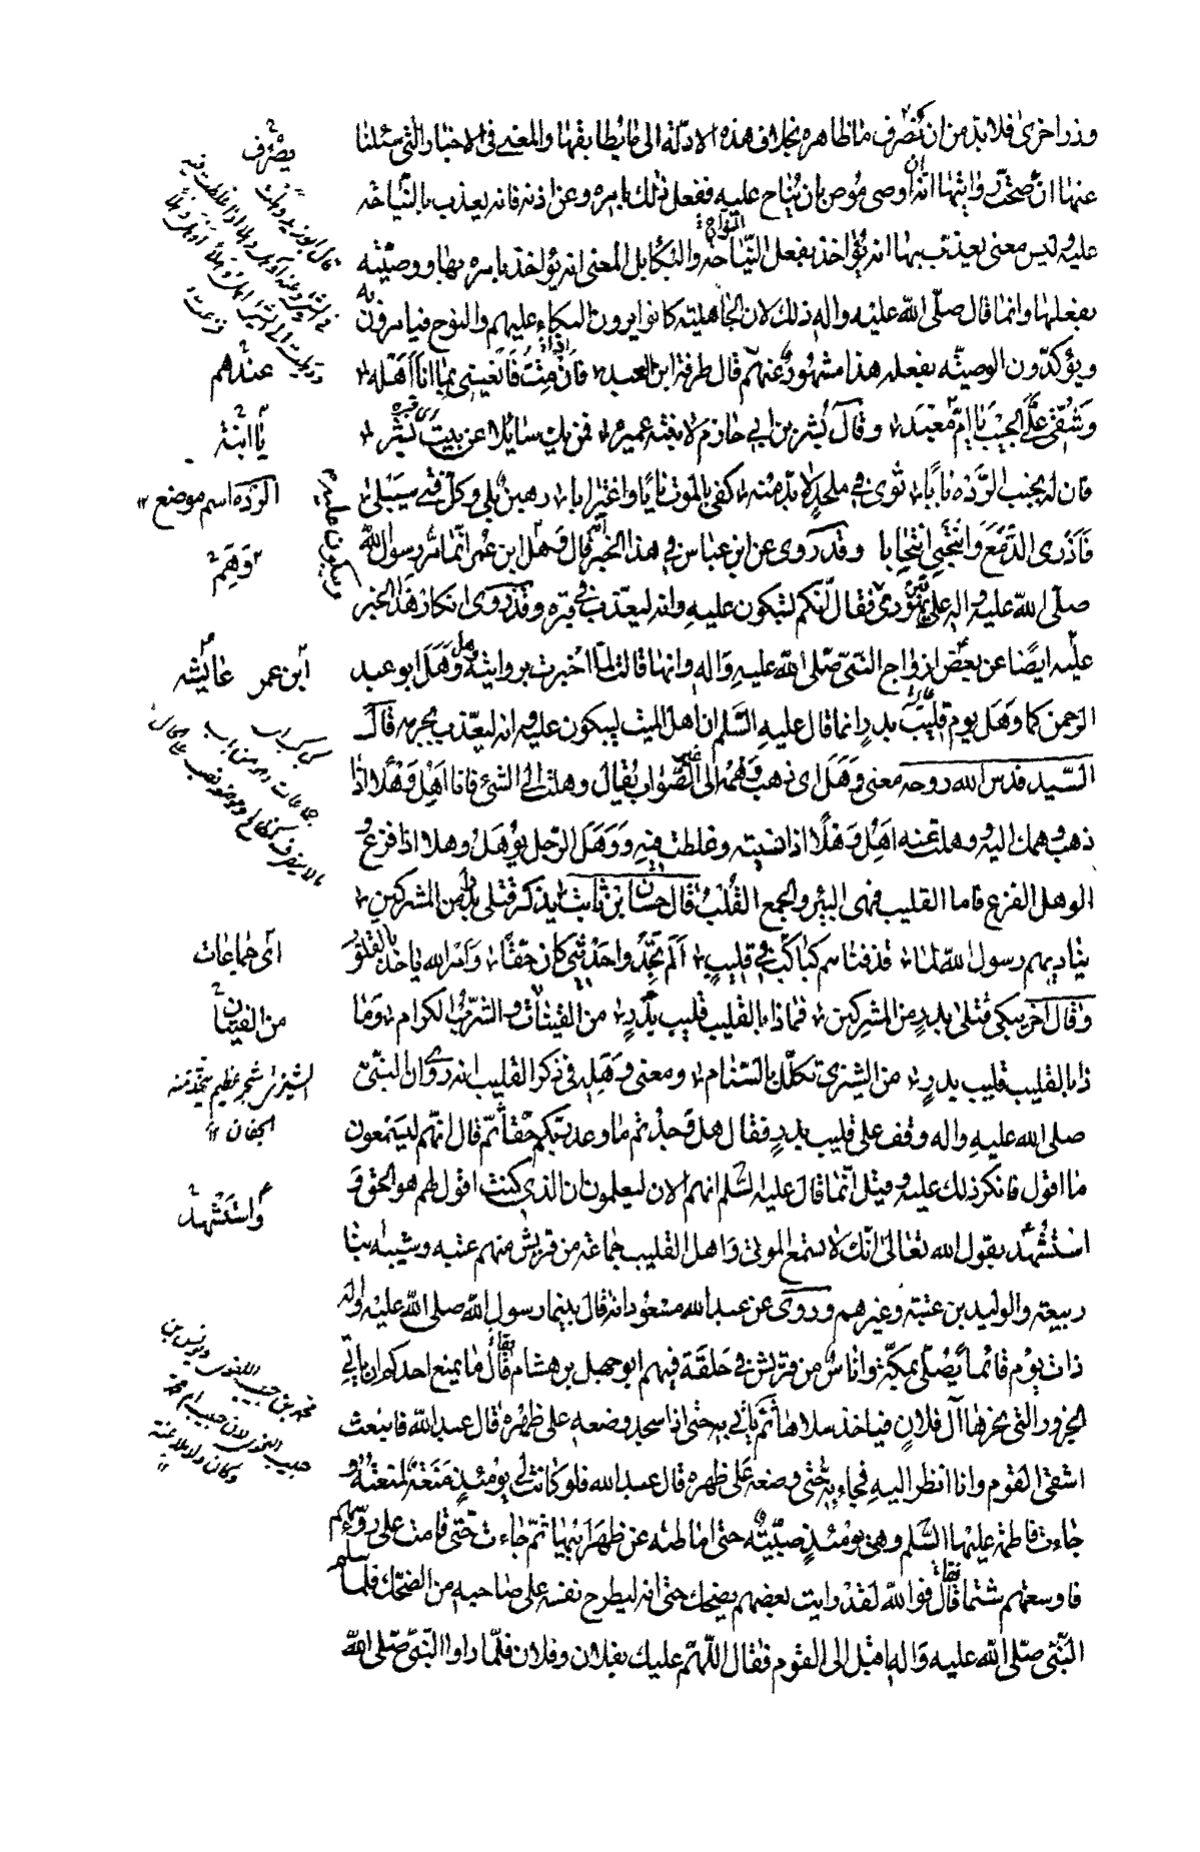 وزر اخرى فلا بد من ان نصرف ما ظاهره بخلاف هذه الادلة الى ما يطابقها والمعنى فى الاخبار التى سئلنا
عنها ان صحت روايتها انه ان اوصى موص بان يناح عليه ففعل ذلك بامره وعن اذنه فانه يعذب بالنياحة
عليه وليس معنى يعذب بها انه يؤاخذ بفعل النياحة والبكا بل المعنى انه يؤاخذ بامره بها ووصيته
بفعلها وانما قال صلى الله عليه واله ذلك لان الجاهلية كانوا يرون البكاء عليهم والنوح فيامرون به
ويؤكدون الوصية بفعله هذا مشهور عنهم قال طرفة ابن العبد فان مت فانعيني بما انا اهله
وشقى على الجيب يا ام معبد وقال بشر بن ابى حازم لابنته عميرة فمن يك سايلا عن بيت بشر
فان له بجنب الرده بابا ثوى فى ملحد لا بد منه كفى بالموت نايا واغترابا رهين بلى وكل فتى سيبلى
فاذرى الدمع وانتحبى انتحابا وقد روى عن ابن عباس فى هذا الخبر انه قال وهل ابن عمر انما مر رسول الله
صلى الله عليه واله على يهودى فقال انكم لتبكون عليه وانه ليعذب فى قبره وقد روى انكار هذا الخبر
عليه ايضا عن بعض ازواج النبى صلى الله عليه واله وانها قالت لما اخبرت بروايته وهل ابو عبد
الرحمن كما وهل يوم قليب بدر انما قال عليه السلم ان اهل الميت ليبكون عليه وانه ليعذب بجرمه قال
السيد قدس الله روحه معنى وهل اى ذهب وهمه الى غير الصواب يقال وهلت الى الشئ فانا اهل وهلا اذا
ذهب وهمك اليه ووهلت عنه اهل وهلا اذا نسيته وغلطت فيه ووهل الرجل يوهل وهلا اذا فزع و
الوهل الفزع فاما القليب فهى البئر والجمع القلب قال حسان بن ثابت يذكر قتلى بدر من المشركين
يناديهم رسول الله لما قذفناهم كباكب فى قليب الم تجدوا حديثى كان حقا وامر الله ياخذ بالقلوب
وقال آخر يبكى قتلى بدر من المشركين فماذا بالقليب قليب بدر من الفتيان والشرب الكرام وما
ذا بالقليب قليب بدر من الشيزى تكلل بالسنام ومعنى وهله فى ذكر القليب انه روى ان النبى
صلى الله عليه واله وقف على قليب بدر فقال هل وجدتم ما وعد ربكم حقا ثم قال انهم ليسمعون
ما اقول فانكر ذلك عليه وقيل انما قال عليه السلم انهم الان ليعلمون ان الذى كنت اقول لهم هو الحق و
استشهد بقول الله تعالى انك لا تسمع الموتى واهل القليب جماعة من قريش منهم عتبه وشيبه ابنا
ربيعه والوليد بن عتبة وغيرهم وروى عن عبد الله مسعود انه قال بينما رسول الله صلى الله عليه واله
ذات يوم قائما يصلى بمكة واناس من قريش فى حلقة فيهم ابو جهل بن هشام فقال ما يمنع احدكم ان ياتى
الجزور التى نحرها آل فلان فياخذ سلاها ثم ياتى به حتى اذا سجد وضعه على ظهره قال عبد الله فانبعث
اشقى القوم وانا انظر اليه فجاء به حتى وضعه على ظهره قال عبد الله فلو كانت لى يومئذ منعة لمنعته و
جاءت فاطمة عليها السلم وهى يومئذ صبية حتى اماطته عن ظهر ابيها ثم جاءت حتى قامت على رؤسهم
فاوسعتهم شتما فقال فوالله لقد رايت بعضهم يضحك حتى انه ليطرح نفسه على صاحبه من الضحك فلما سلم
النبى صلى الله عليه واله اقبل الى القوم فقال اللهم عليك بفلان وفلان فلما راوا النبى صلى الله
يصرف
عندهم
يا ابنة
الرده اسم موضع
وهم
ابن عمر
عايشه
اى جماعات
من الفتيان
الشيزى شجر عظيم يتخذ منه
الجفان
واستشهد